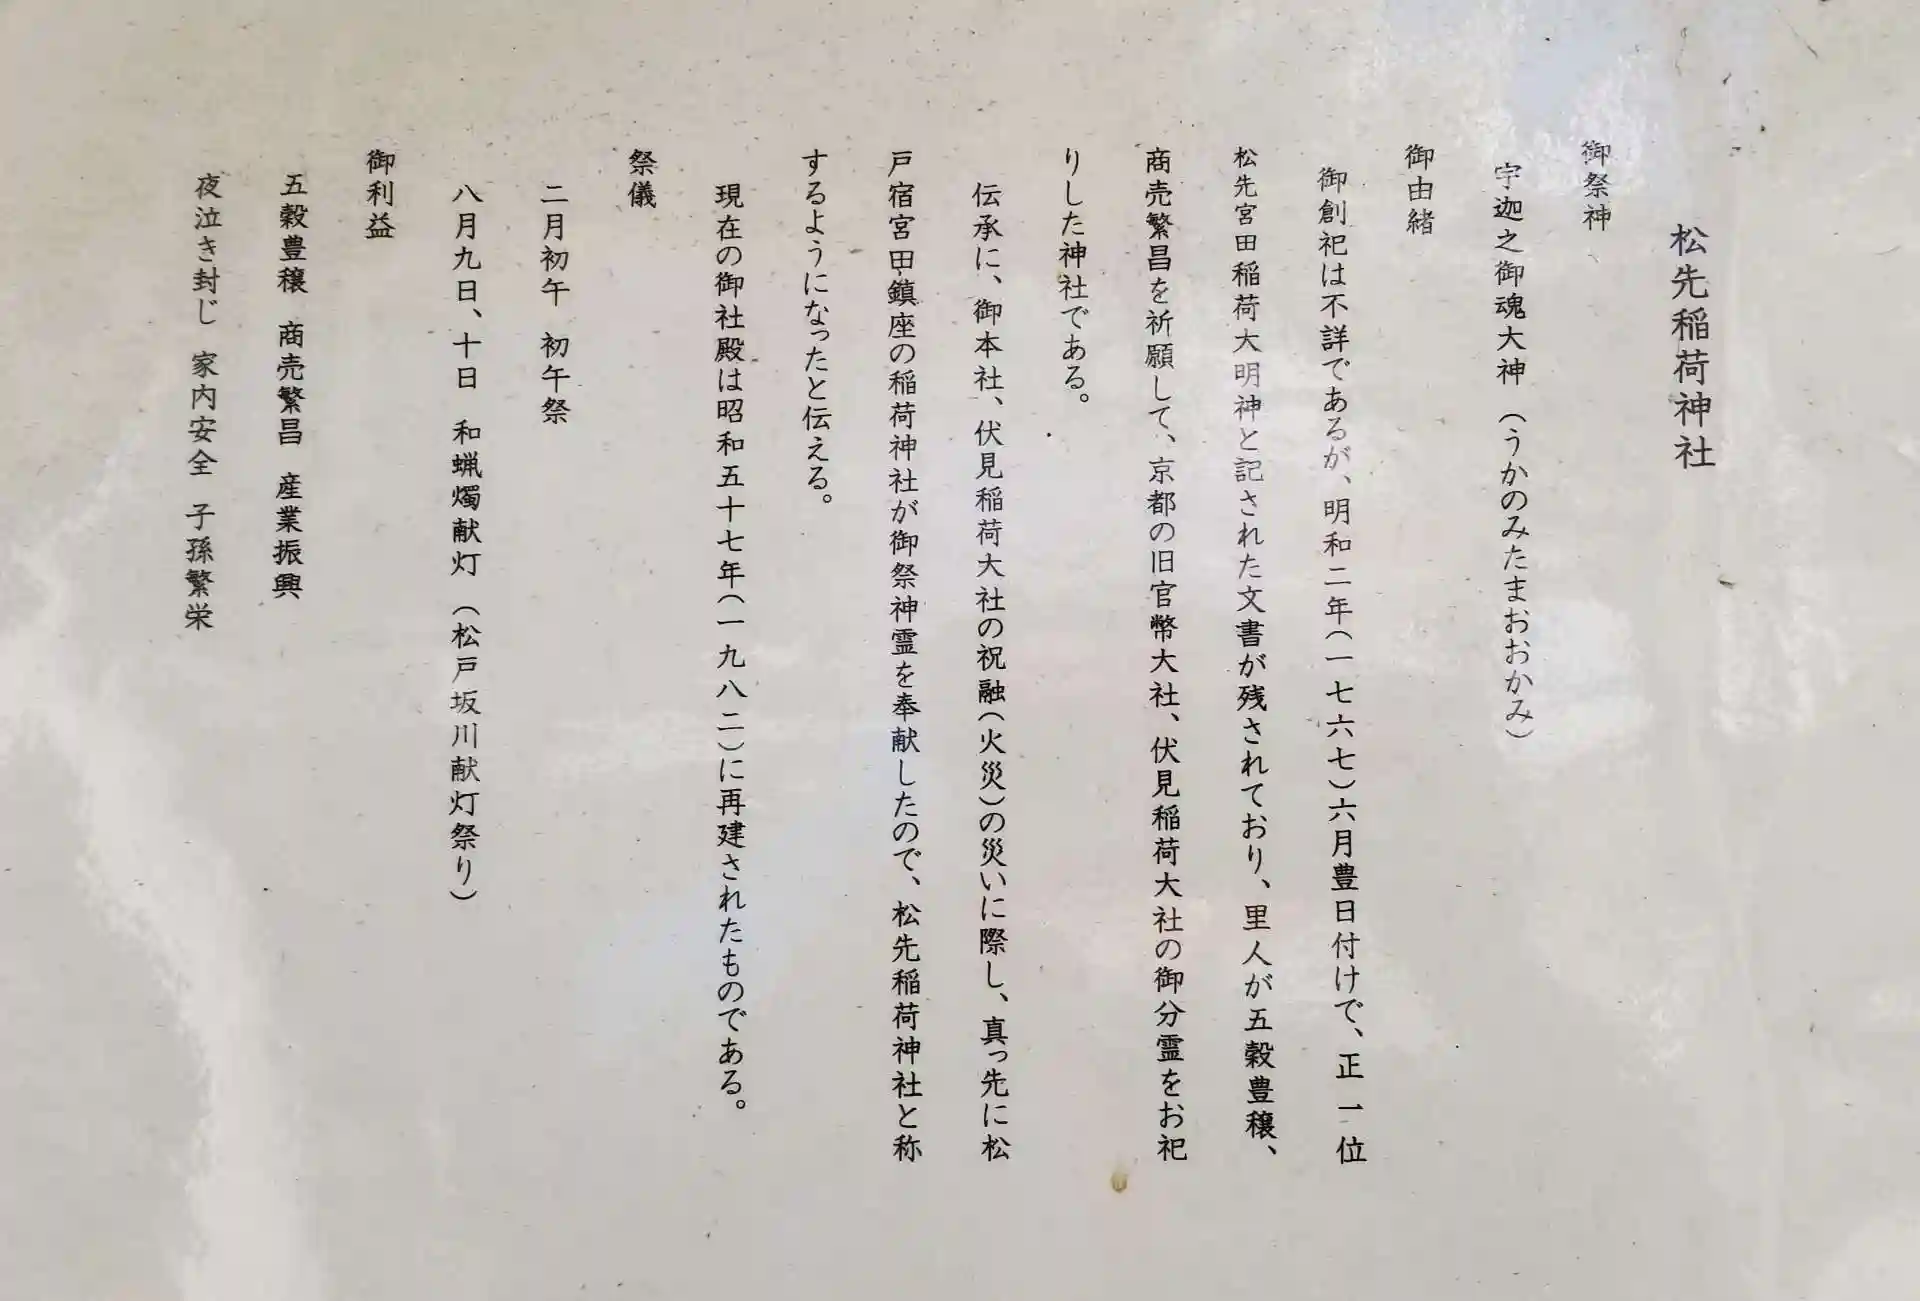 松先稲荷神社
御祭神
宇迦之御魂大神（うかのみたまおおかみ）
御由緒
御創祀は不詳であるが、明和二年（一七六七）六月豊日付けで、正一位
松先宮田稲荷大明神と記された文書が残されており、里人が五穀豊穣、
商売繁昌を祈願して、京都の旧官幣大社、伏見稲荷大社の御分霊をお祀
りした神社である。
伝承に、御本社、伏見稲荷大社の祝融（火災）の災いに際し、真っ先に松
戸宿宮田鎮座の稲荷神社が御祭神霊を奉献したので、松先稲荷神社と称
するようになったと伝える。
現在の御社殿は昭和五十七年（一九八二）に再建されたものである。
祭儀
二月初午　初午祭
八月九日、十日　和蝋燭献灯（松戸坂川献灯祭り）
御利益
五穀豊穣　商売繁昌　産業振興
夜泣き封じ　家内安全　子孫繁栄